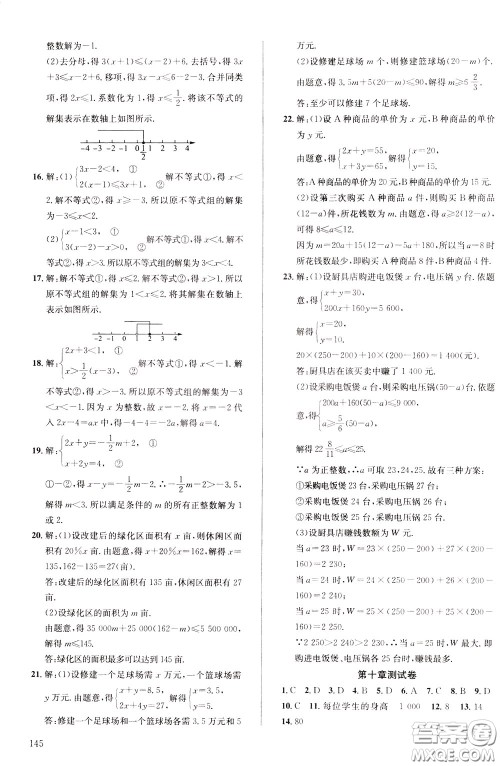 整数解为-1.
(2)去分母,得 3(x+1)≤(2-x)+6. 去括号,得
3x+3≤2-x+6. 移项,得 3x+x≤2-3+6. 合并同类
项,得 2x≤1. 系数化为 1,得 x≤1/2. 将该不等式的
解集表示在数轴上如图所示.
-4 -3 -2 -1 0 1/2 1 2 3 4
16. 解:(1){3x-2<4, ①
2(x-1)≤3x+1, ②
解不等式①,得 x<
2. 解不等式②,得 x≥-3. 所以原不等式组的解集
为-3≤x<2.
(2){x-1<3, ①
3(x-2)-x>0, ②
解不等式①,得 x<
4. 解不等式②,得 x>3. 所以原不等式组的解集
为 3<x<4.
17. 解:解不等式①,得 x>1. 解不等式②,得 x≤2. 所以
原不等式组的解集为 1<x≤2. 将其解集在数轴上
表示如图所示.
-4 -3 -2 -1 0 1 2 3 4
18. 解:{2x+3<1, ①
x>1/2(x-3), ②
解不等式①,得 x<-1. 解不等
式②,得 x>-3. 所以原不等式组的解集为-3
<x<-1. 因为 x 为整数,故 x=-2. 将 x=-2 代
入 2x-4=ax 中,得-4-4=-2a,解得 a=4.
19. 解:{2x+y=-1/2m+2, ①
x+2y=1/2m, ②
①-②,得 x-y=-m+2>-3.5,
解得 m<3. 所以满足条件的 m 的所有正整数解为 1
或 2.
20. 解:(1)设改建后的绿化区面积有 x 亩,则休闲区面积
有 20%x 亩. 由题意,得 x+20%x=162,解得 x=
135,162-135=27(亩).
答:改建后的绿化区面积有 135 亩,休闲区面积有 27
亩.
(2)设绿化区的面积有 m 亩.
由题意,得 35 000m+25 000(162-m)≤5 500 000,
解得 m≤145.
答:绿化区的面积最多可以达到 145 亩.
21. 解:(1)设修建一个足球场需 x 万元,一个篮球场需
y 万元. 由题意,得{x+y=8.5, 解得{x=3.5,
y=5.
答:修建一个足球场和一个篮球场各需 3.5 万元和 5
万元.
(2)设修建足球场 m 个,则修建篮球场(20-m)个.
由题意,得 3.5m+5(20-m)≤90,解得 m≥6 2/3.
答:至少可以修建 7 个足球场.
22. 解:(1)设 A 种商品的单价为 x 元,B 种商品的单价
为 y 元.
由题意,得{2x+y=55,
x+3y=65, 解得{x=20,
y=15.
答:A 种商品的单价为 20 元,B 种商品的单价为 15 元.
(2)设第三次购买 A 种商品 a 件,则购买 B 种商品
(12-a)件,所花钱数为 m 元. 由题意,得 a≥2(12-a),
可得 8≤a≤12.
因为 m=20a+15(12-a)=5a+180,所以当 a=8 时
所花钱数最少,即购买 A 种商品 8 件,B 种商品 4 件.
23. 解:(1)设厨具店购进电饭煲 x 台,电压锅 y 台. 依题
意,得{x+y=30,
200x+160y=5 600,
解得{x=20,
y=10.
20×(250-200)+10×(200-160)=1 400(元).
答:厨具店在该买卖中赚了 1 400 元.
(2)设采购电饭煲 a 台,则采购电压锅(50-a)台. 依题
意,得{200a+160(50-a)≤9 000,
a≥5/6(50-a),
解得 22 8/11≤a≤25.
∵a 为正整数,∴a 可取 23,24,25. 故有三种方案:
①采购电饭煲 23 台,采购电压锅 27 台;
②采购电饭煲 24 台,采购电压锅 26 台;
③采购电饭煲 25 台,采购电压锅 25 台.
(3)设厨具店赚钱数额为 W 元.
当 a=23 时,W=23×(250-200)+27×(200-
160)=2 230;
当 a=24 时,W=24×(250-200)+26×(200-
160)=2 240;
当 a=25 时,W=25×(250-200)+25×(200-
160)=2 250.
∵2 250>2 240>2 230,∴当 a=25 时,W 最大,此
时购进电饭煲、电压锅各 25 台时,赚钱最多.
第十章测试卷
1. C 2. D 3. D 4. A 5. A 6. C 7. B 8. B 9. D
10. D 11. 每位学生的身高 1 000 12. 40 13. 14
14. 80
145